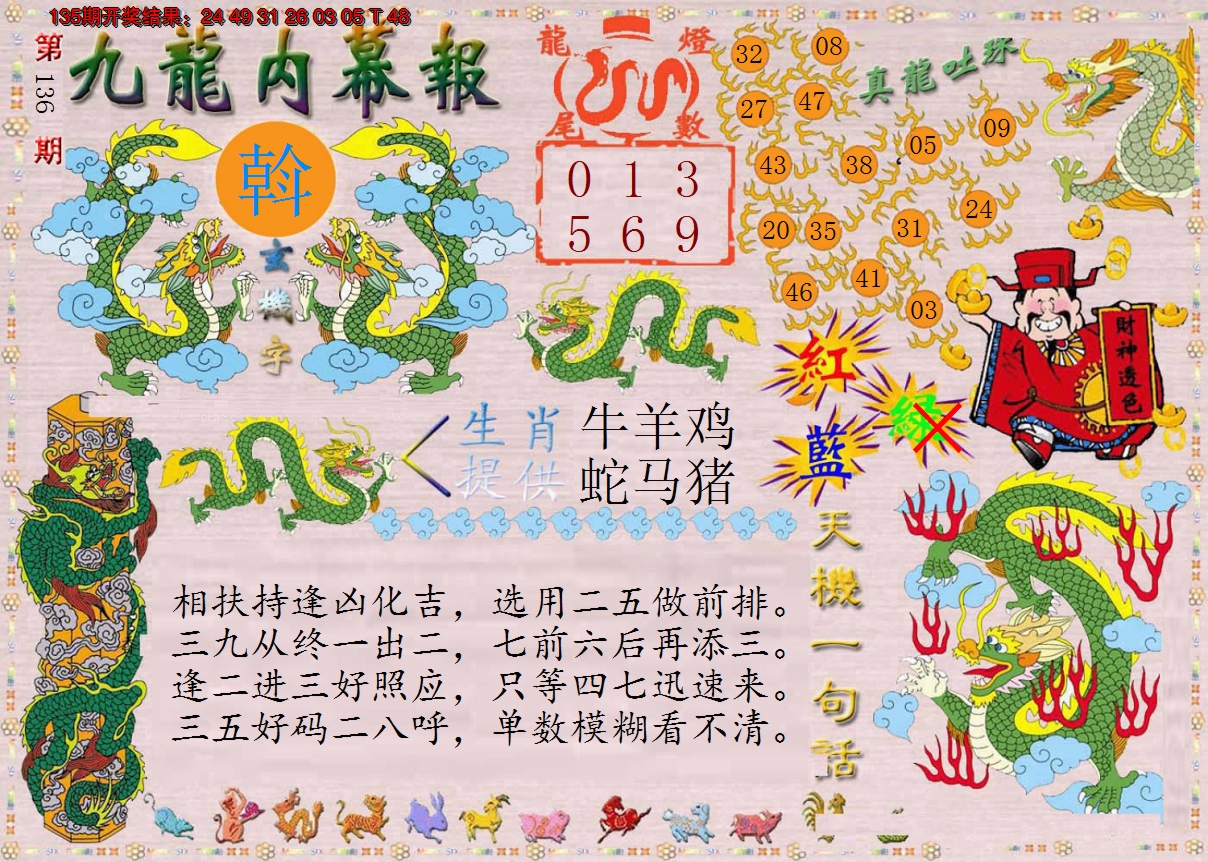 135期开奖结果：24 49 31 26 03 05 T 48
第136期
九龍内幕報
斡
玄機字
龍燈
尾數
0 1 3
5 6 9
真龍吐珠
32 08
27 47
43 38 05 09
20 35 31 24
46 41 03
財神透色
紅
綠
藍
生肖 牛羊鸡
提供 蛇马猪
天機一句話
相扶持逢凶化吉，选用二五做前排。
三九从终一出二，七前六后再添三。
逢二进三好照应，只等四七迅速来。
三五好码二八呼，单数模糊看不清。